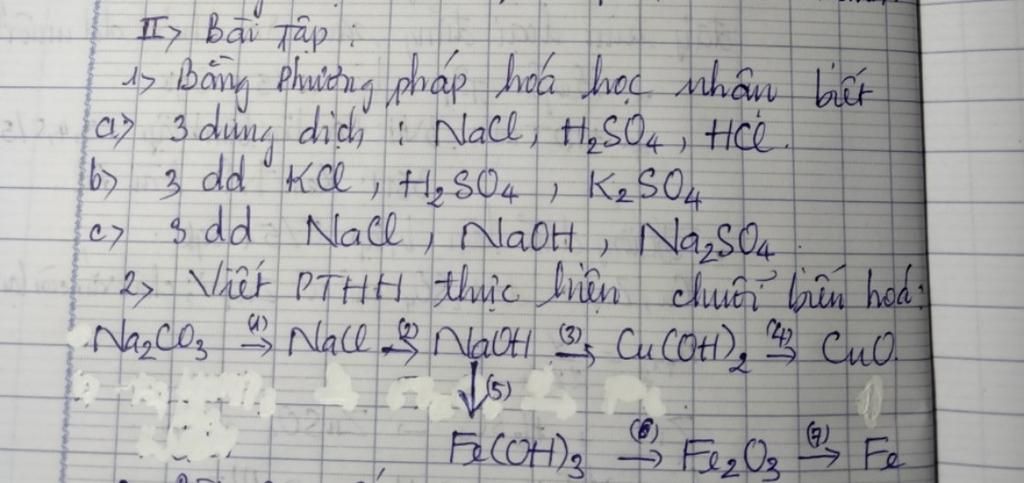 II> Bài Tập :
1> Bằng phương pháp hoá học nhận biết
a> 3 dung dịch : NaCl, H₂SO₄, HCl.
b> 3 dd KCl, H₂SO₄, K₂SO₄
c> 3 dd NaCl, NaOH, Na₂SO₄.
2> Viết PTHH thực hiện chuỗi biến hoá:
Na₂CO₃ (1)→ NaCl (2)→ NaOH (3)→ Cu(OH)₂ (4)→ CuO
↓(5)
Fe(OH)₃ (6)→ Fe₂O₃ (7)→ Fe